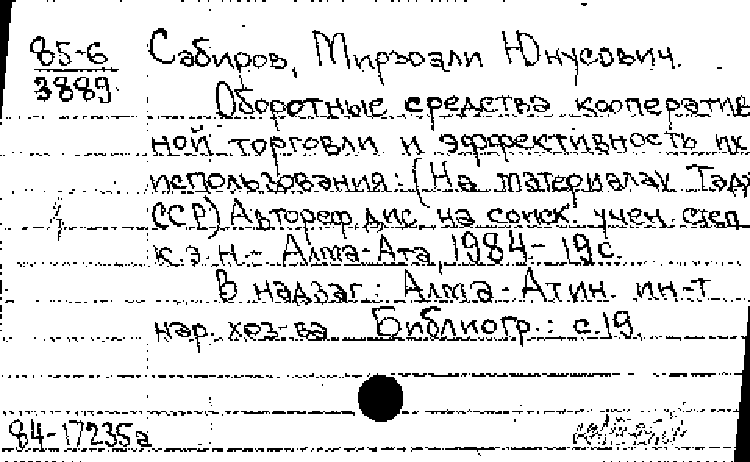 85-6
3889
Сабиров, Мирзоали Юнусович.
Оборотные средства кооператив
ной торговли и эффективность их
использования: (На материалах Тадж
ССР) Автореф дис. на соиск. учен. степ
к.э.н. - Алма-Ата, 1984 - 19с.
В надзаг.: Алма-Атин. ин-т
нар. хоз-ва Библиогр.: с.19.
84-17235а